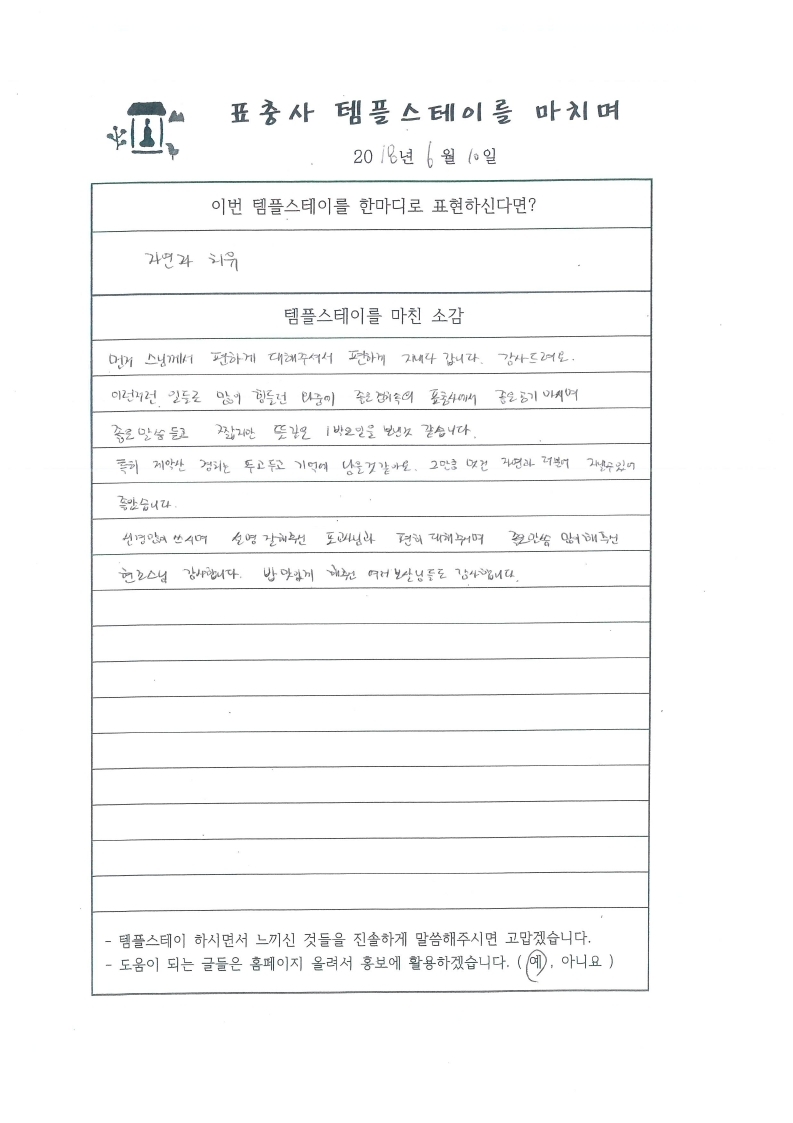 표충사 템플스테이를 마치며
2018년 6월 10일
이번 템플스테이를 한마디로 표현하신다면?
자연과 치유
템플스테이를 마친 소감
먼저 스님께서 편하게 대해주셔서 편하게 지내다 갑니다. 감사드려요.
이런저런 일들로 많이 힘들던 와중에 좋은 경치속의 표충사에서 좋은공기 마시며
좋은말씀 듣고 짧지만 뜻깊은 1박2일을 보낸것 같습니다.
특히 재약산 경치는 두고두고 기억에 남을것같아요. 그만큼 멋진 자연과 더불어 지낼수있어
좋았습니다.
신경많이 쓰시며 설명 잘해주신 포교사님과 편히 대해주시며 좋은말씀 많이해주신
현오스님 감사합니다. 밥 맛있게 해주신 여러 보살님들도 감사합니다.
- 템플스테이 하시면서 느끼신 것들을 진솔하게 말씀해주시면 고맙겠습니다.
- 도움이 되는 글들은 홈페이지 올려서 홍보에 활용하겠습니다. ( 예 , 아니요 )